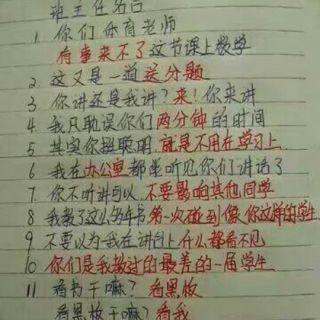 班主任名言
1 你们体育老师
有事来不了这节课上数学
2 这又是一道送分题
3 你讲还是我讲?来!你来讲
4 我只耽误你们两分钟的时间
5 其实你挺聪明,就是不用在学习上
6 我在办公室都能听见你们讲话了
7 你不听讲可以,不要影响其他同学
8 我教了这么多年书第一次碰到像你这样的学生
9 不要以为我在讲台上什么都看不见
10 你们是我教过的最差的一届学生
11 看书干嘛?看黑板
看黑板干嘛?看我